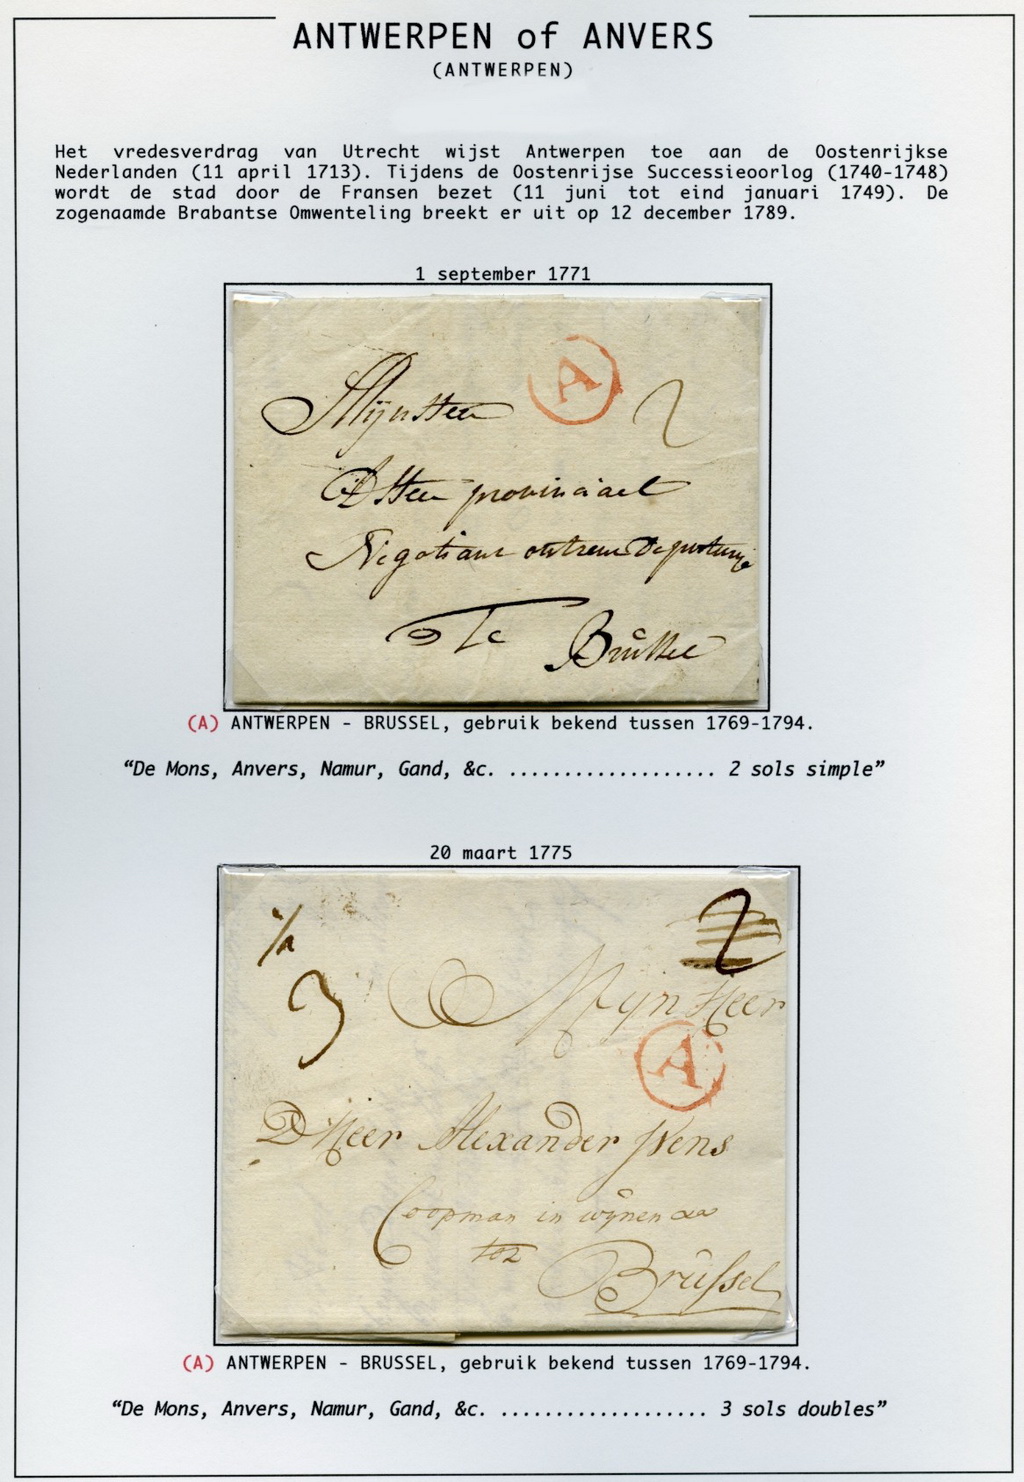 ANTWERPEN of ANVERS
(ANTWERPEN)
Het vredesverdrag van Utrecht wijst Antwerpen toe aan de Oostenrijkse
Nederlanden (11 april 1713). Tijdens de Oostenrijse Successieoorlog (1740-1748)
wordt de stad door de Fransen bezet (11 juni tot eind januari 1749). De
zogenaamde Brabantse Omwenteling breekt er uit op 12 december 1789.
1 september 1771
A
2
Mijn Heer
D Heer provinciael
Negotiant
Te Brussel
(A) ANTWERPEN - BRUSSEL, gebruik bekend tussen 1769-1794.
“De Mons, Anvers, Namur, Gand, &c. ................... 2 sols simple”
20 maart 1775
2
3
Mijn Heer
A
D Heer Alexander Wens
Coopman in wijnen
tot
Brussel
(A) ANTWERPEN - BRUSSEL, gebruik bekend tussen 1769-1794.
“De Mons, Anvers, Namur, Gand, &c. ................... 3 sols doubles”